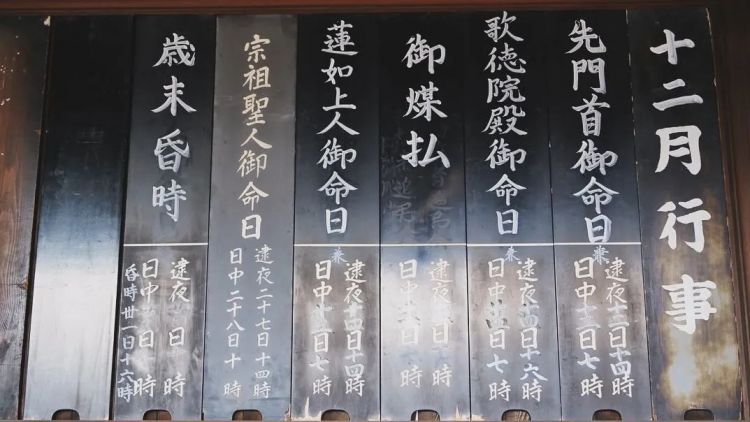 十二月行事
先門首御命日
兼
逮夜十二日十四時
日中 日七時
歌徳院殿御命日
兼
逮夜十四日十六時
日中 日七時
御煤払
逮夜 日 時
日中 日 時
蓮如上人御命日
兼
逮夜 日十四時
日中 日七時
宗祖聖人御命日
逮夜二十七日十四時
日中二十八日十時
歳末昏時
逮夜 日 時
日中 日 時
昏時卅一日十六時